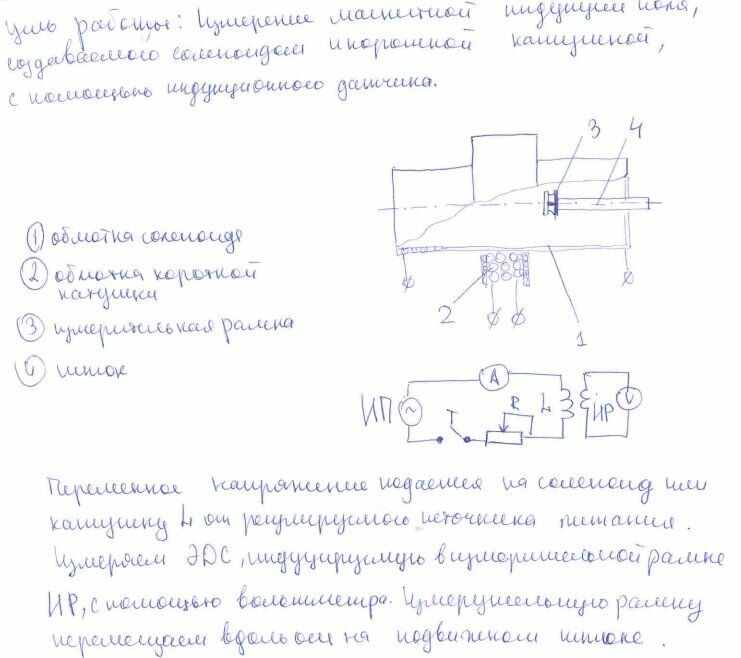 Цель работы: Измерение магнитной индукции поля,
создаваемого соленоидом и короткой катушкой,
с помощью индукционного датчика.
3 4
① обмотка соленоида
② обмотка короткой
катушки
③ измерительная рамка
④ шток
2
1
ИП ~ A T R L ИР V
Переменное напряжение подается на соленоид или
катушку L от регулируемого источника питания.
Измеряем ЭДС, индуцируемую в измерительной рамке
ИР, с помощью вольтметра. Измерительную рамку
перемещаем вдоль оси на подвижном штоке.